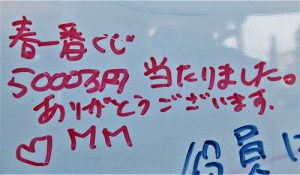 春一番くじ
5000万円 当たりました。
ありがとうございます.
♡MM
役員は